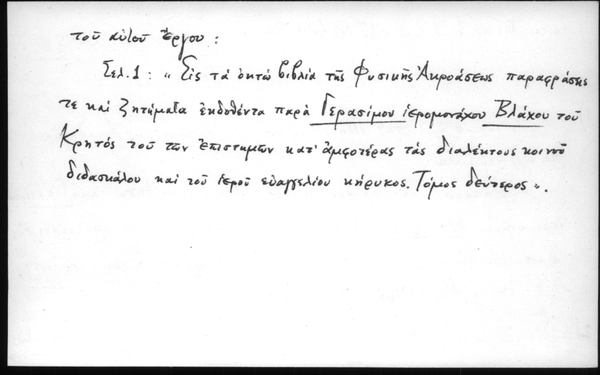 τοῦ αὐτοῦ ἔργου :
Σελ. 1 : " Εἰς τὰ ὀκτὼ βιβλία τῆς Φυσικῆς Ἀκροάσεως παραφράσεις
τε καὶ ζητήματα ἐκδοθέντα παρὰ Γερασίμου ἱερομονάχου Βλάχου τοῦ
Κρητός τοῦ τῶν ἐπιστημῶν κατ' ἀμφοτέρας τὰς διαλέκτους κοινοῦ
διδασκάλου καὶ τοῦ ἱεροῦ εὐαγγελίου κήρυκος. Τόμος δεύτερος ".